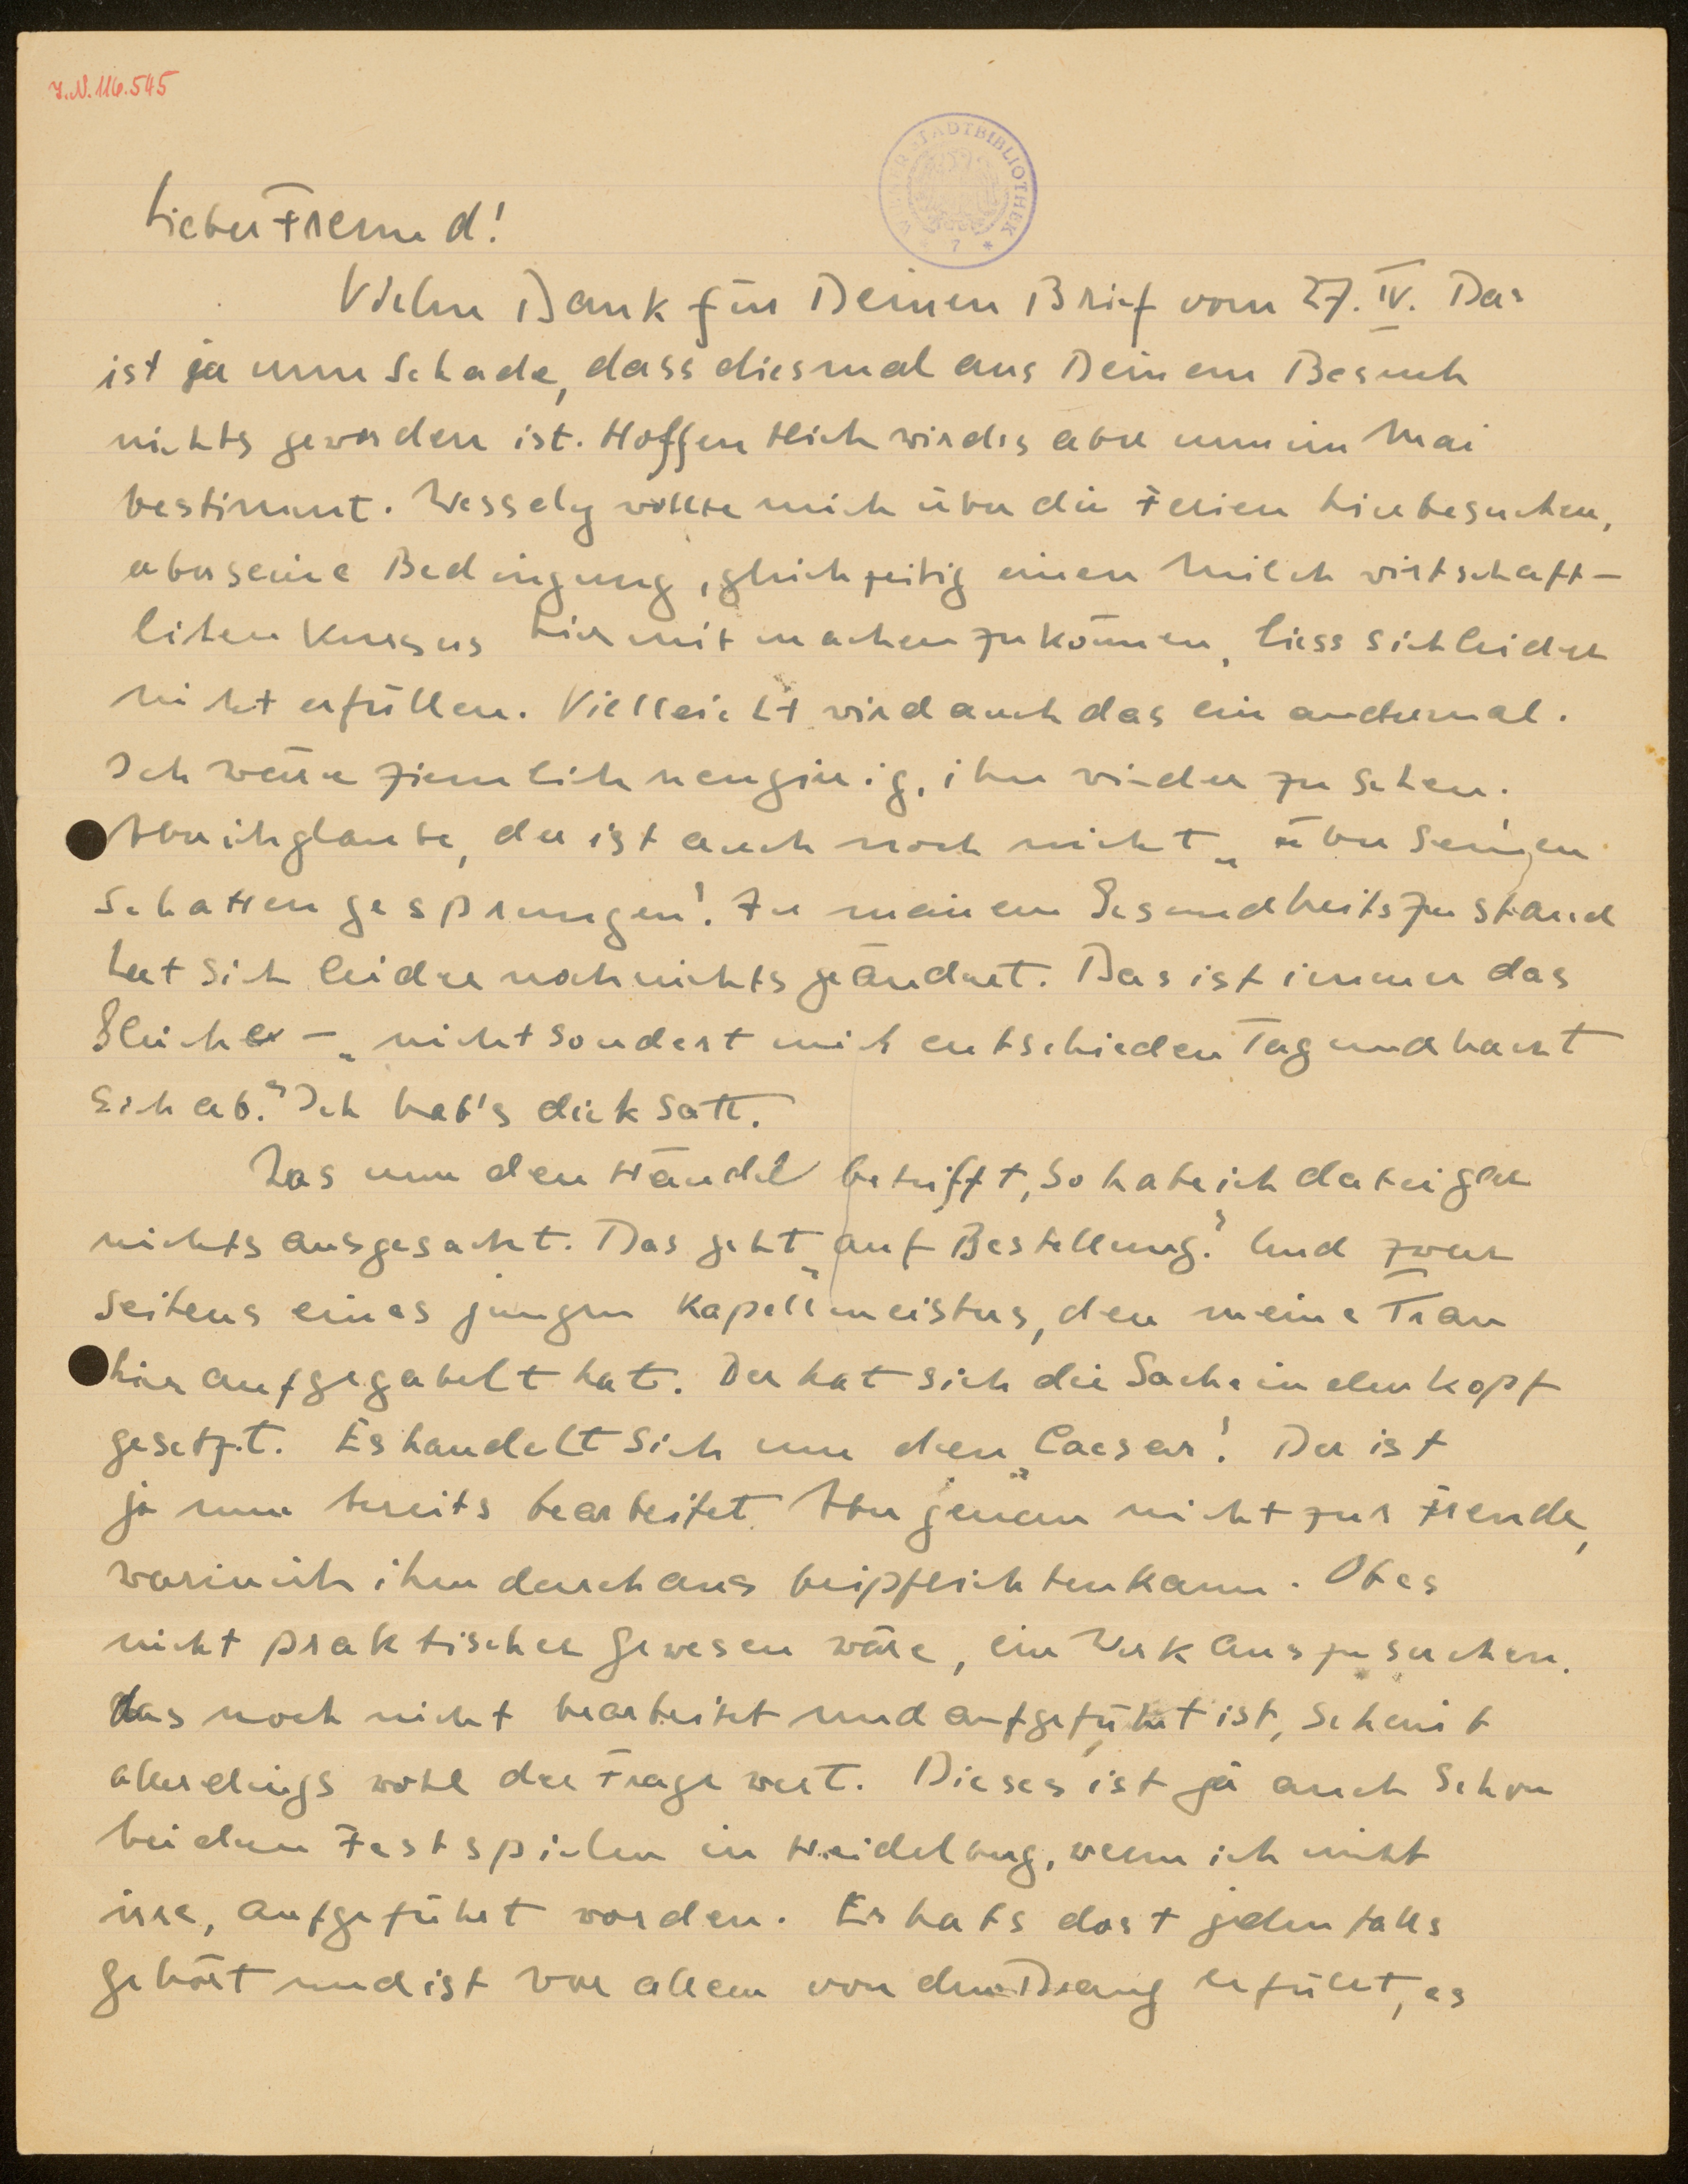 I.N. 116.545
WIENER STADTBIBLIOTHEK * 7 *
Lieber Freund!
Vielen Dank für Deinen Brief vom 27. IV. Das
ist ja nun schade, dass diesmal aus Deinem Besuch
nichts geworden ist. Hoffentlich wird es aber nun im Mai
bestimmt. Wessely wollte mich über die Ferien hier besuchen,
aber seine Bedingung, gleichzeitig einen milchwirtschaft-
lichen Kursus hier mitmachen zu können, liess sich leider
nicht erfüllen. Vielleicht wird auch das ein andermal.
Ich wäre ziemlich neugierig, ihn wieder zu sehen.
Aber ich glaube, der ist auch noch nicht „über seinen
Schatten gesprungen". Zu meinem Gesundheitszustand
hat sich leider noch nichts geändert. Das ist immer das
Gleiche – „nicht sondert mit entschieden Tag und Nacht
sich ab." Ich hab's dick satt.
Was nun den Händel betrifft, so habe ich da keiger
nichts ausgesucht. Das geht „auf Bestellung". Und zwar
seitens eines jungen Kapellmeisters, den meine Frau
hier aufgegabelt hat. Der hat sich die Sache in den Kopf
gesetzt. Es handelt sich um den „Caesar". Der ist
ja nun bereits bearbeitet. Aber genau nicht zur Freude,
worin ich ihm durchaus beipflichten kann. Ob es
nicht praktischer gewesen wäre, ein Werk auszusuchen,
das noch nicht bearbeitet und aufgeführt ist, scheint
allerdings wohl der Frage wert. Dieses ist ja auch schon
bei den Festspielen in Heidelberg, wenn ich nicht
irre, aufgeführt worden. Er hat's dort jedenfalls
gehört und ist vor allem von dem Drang erfüllt, es